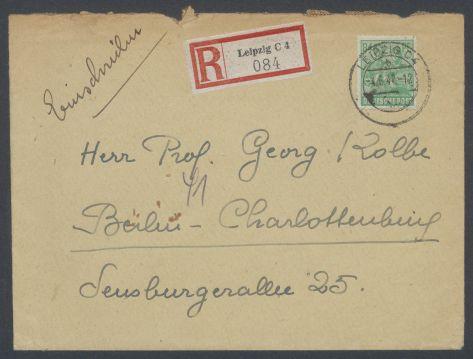 Einschreiben
R
Leipzig C 4
084
LEIPZIG C4
DEUTSCHE POST
Herr Prof. Georg Kolbe
41
Berlin - Charlottenburg
Sensburgerallee 25.